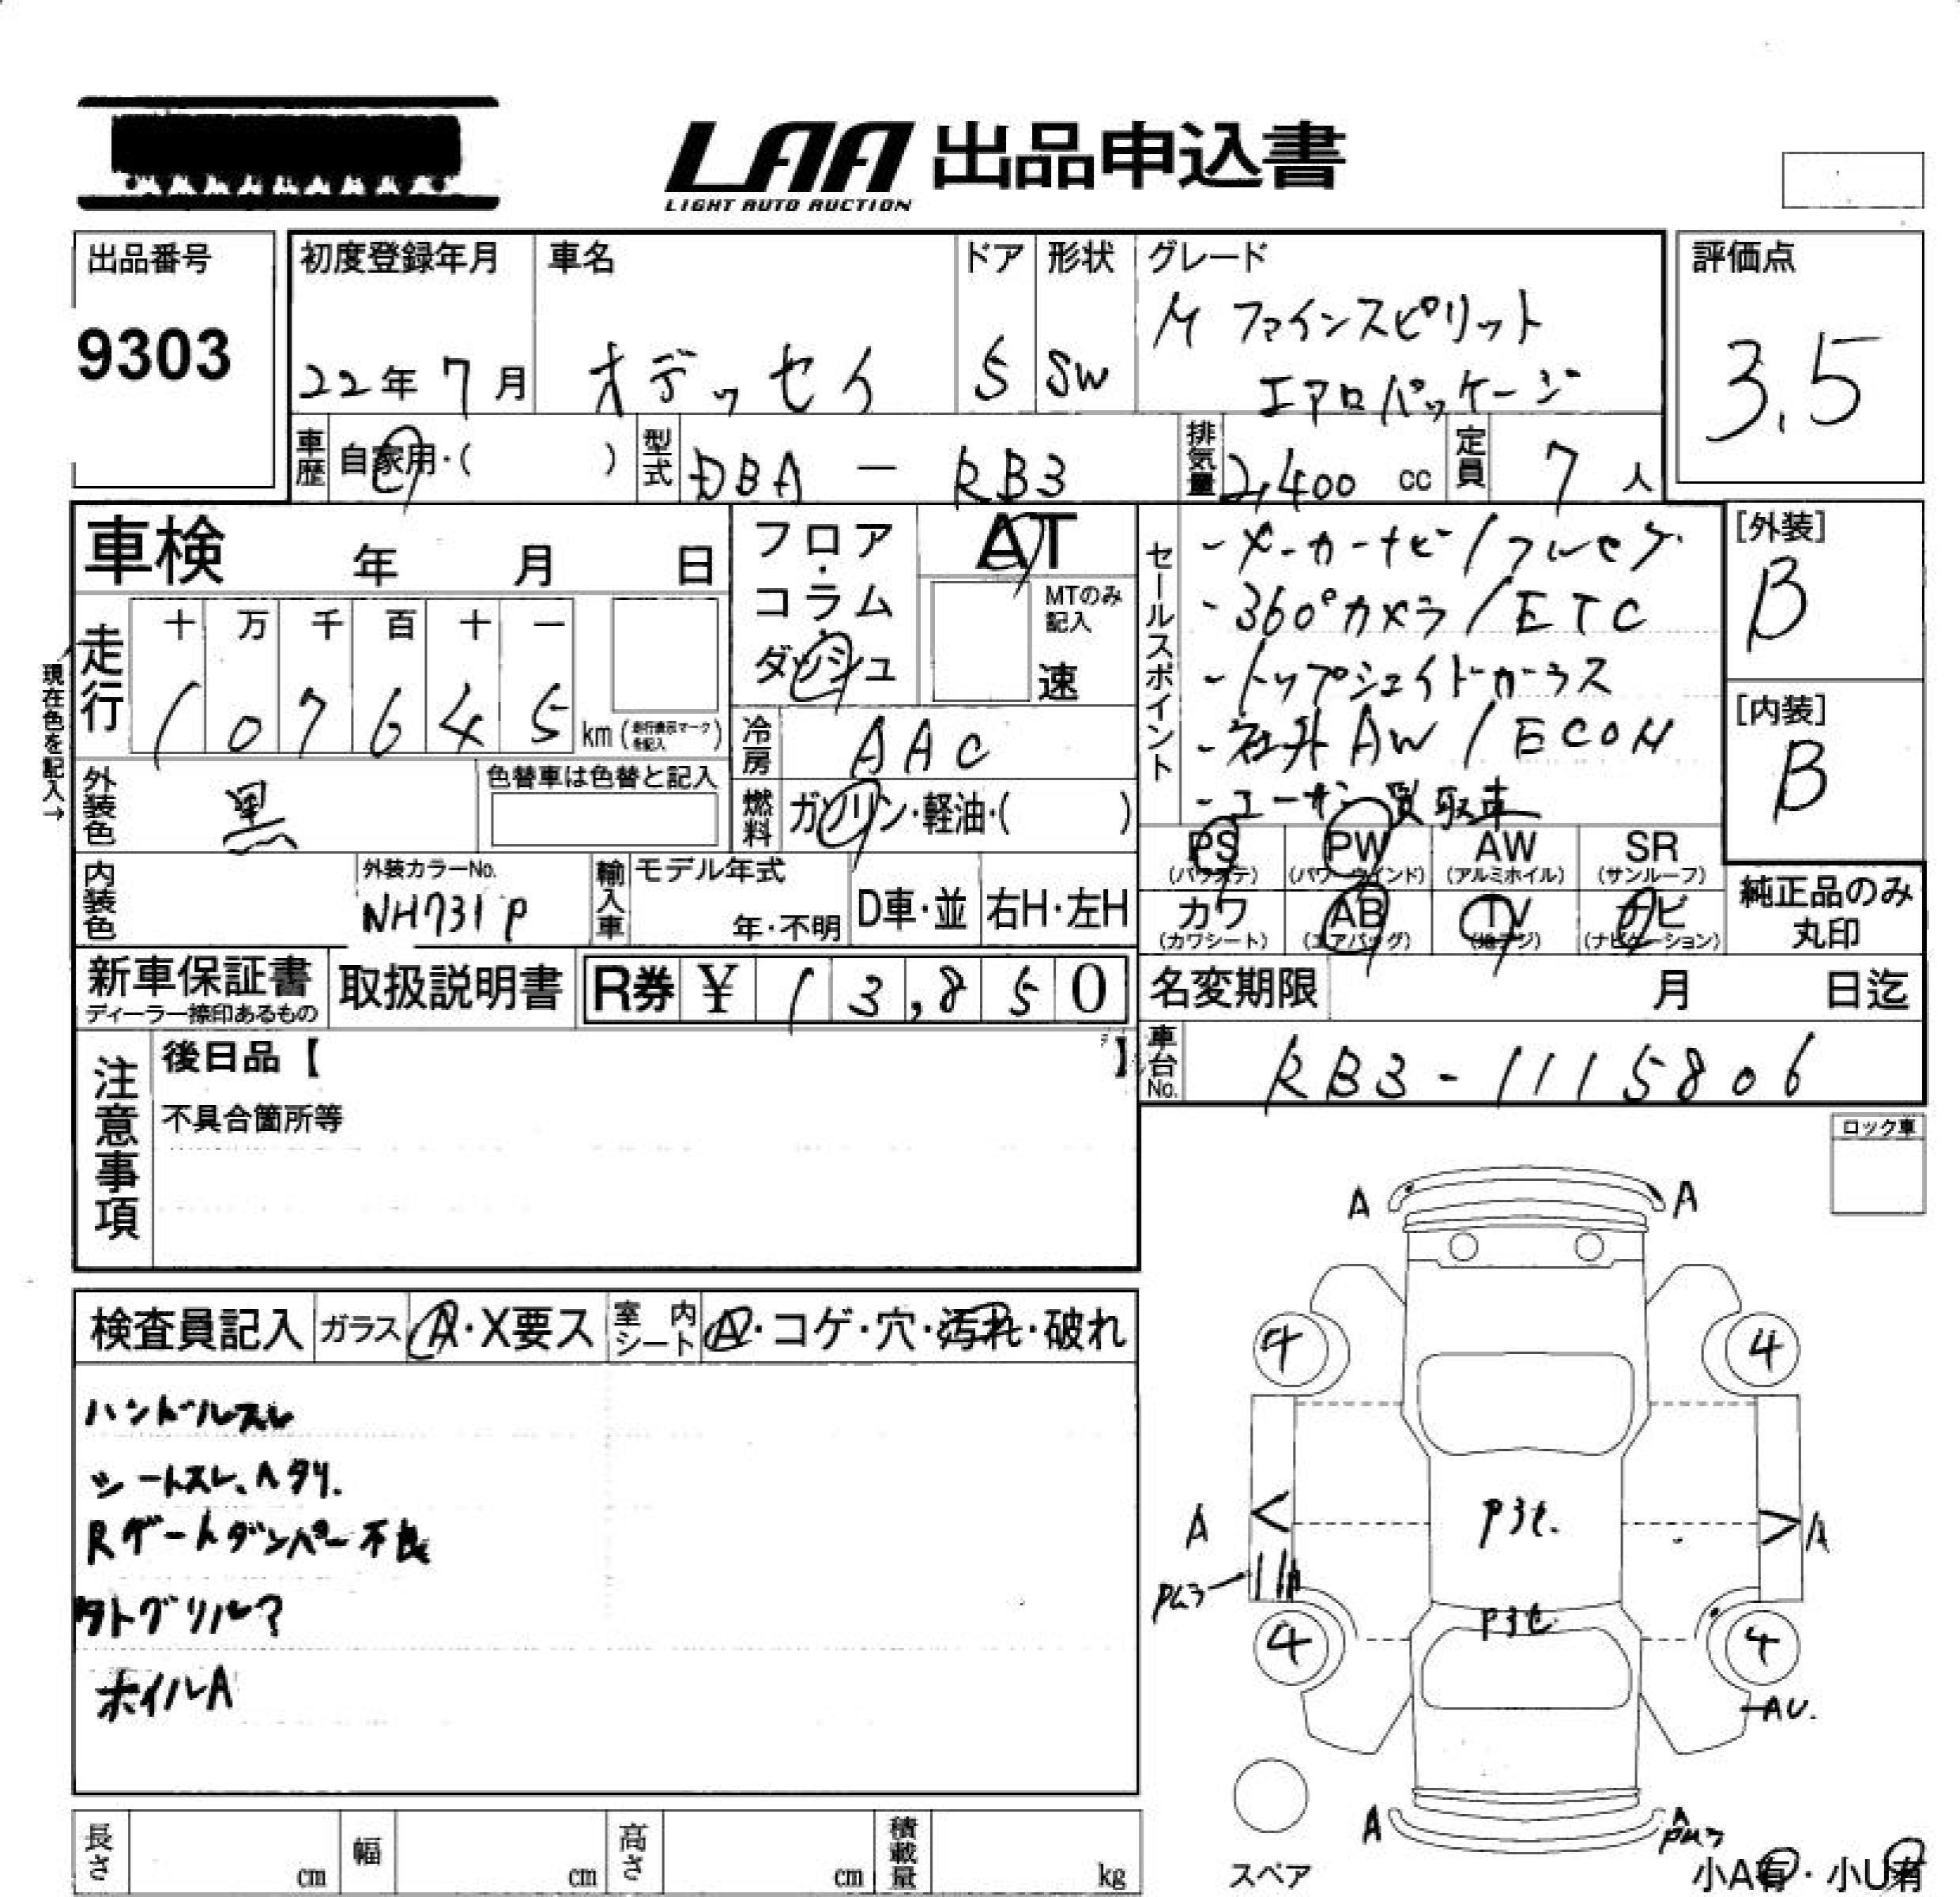 LAA 出品申込書
LIGHT AUTO AUCTION
出品番号
9303
初度登録年月
22年 7月
車名
オデッセイ
ドア
5
形状
SW
グレード
M ファインスピリット
エアロパッケージ
評価点
3.5
車歴
自家用・( )
型式
DBA - RB3
排気量
2,400 cc
定員
7 人
車検 年 月 日
フロア・コラム・ダッシュ
AT
MTのみ記入
速
セールスポイント
-メーカーナビ/フルセグ
-360°カメラ/ETC
-トップシェイドガラス
-社外AW/ECON
-ユーザー買取車
[外装]
B
[内装]
B
現在色を記入→
走行
十 万 千 百 十 一
1 0 7 6 4 5 km (走行表示マークを記入)
冷房
AAC
外装色
黒
色替車は色替と記入
燃料
ガソリン・軽油・( )
PS PW AW SR
(パワステ) (パワーウインド) (アルミホイル) (サンルーフ)
カワ AB TV ナビ
(カワシート) (エアバッグ) (地デジ) (ナビゲーション)
純正品のみ
丸印
内装色
外装カラーNo.
NH731P
輸入車
モデル年式
年・不明
D車・並
右H・左H
新車保証書
ディーラー捺印あるもの
取扱説明書
R券 ¥ 13,850
名変期限 月 日迄
車台No.
RB3-1115806
注意事項
後日品【 】
不具合箇所等
ロック車
検査員記入
ガラス
A・X要ス
室内シート
A・コゲ・穴・汚れ・破れ
ハンドルスレ
シートスレ、ヘタリ.
Rゲートダンパー不良
外トグリル?
ホイルA
A A
4 4
A < P3セ. > A
P3セ
4 4
AU.
A A
スペア
小A有・小U有
長さ cm
幅 cm
高さ cm
積載量 kg